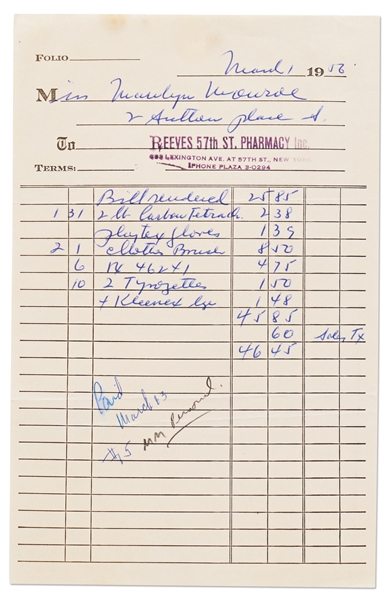 FOLIO
March 1 1956
Miss Marilyn Monroe
2 Sutton place S.
To REEVES 57th ST. PHARMACY Inc.
LEXINGTON AVE. AT 57TH ST., NEW
TERMS: PHONE PLAZA 3-0294
Bill rendered 25 85
1 31 2 lb Carbon Tetrach 2 38
playtex gloves 1 39
2 1 Clothes Brush 8 50
6 RX 46241 4 75
10 2 Tyrozettes 1 50
4 Kleenex lge 1 48
45 85
60 Sales Tx
46 45
Paid
March 13
#5 MM Personal